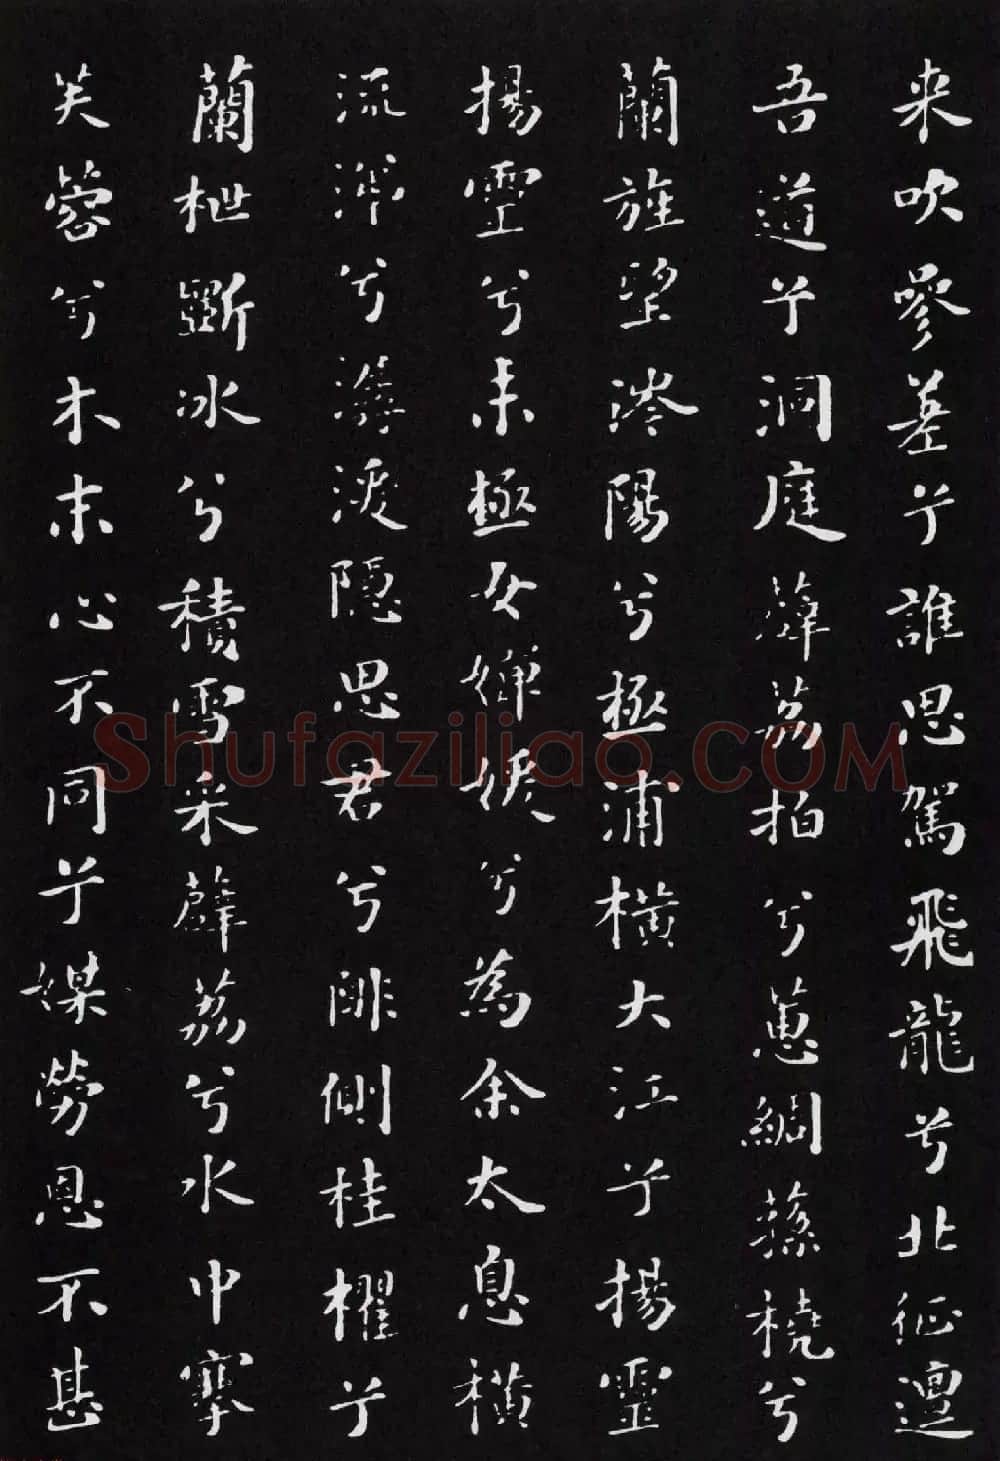 来吹參差兮誰思駕飛龍兮北征邅
吾道兮洞庭薜荔拍兮蕙綢蓀橈兮
蘭旌望涔陽兮極浦橫大江兮揚靈
揚靈兮未極女嬋媛兮為余太息橫
流涕兮潺湲隱思君兮陫側桂櫂兮
蘭枻斲冰兮積雪采薜荔兮水中搴
芙蓉兮木末心不同兮媒勞恩不甚
Shufaziliao.COM